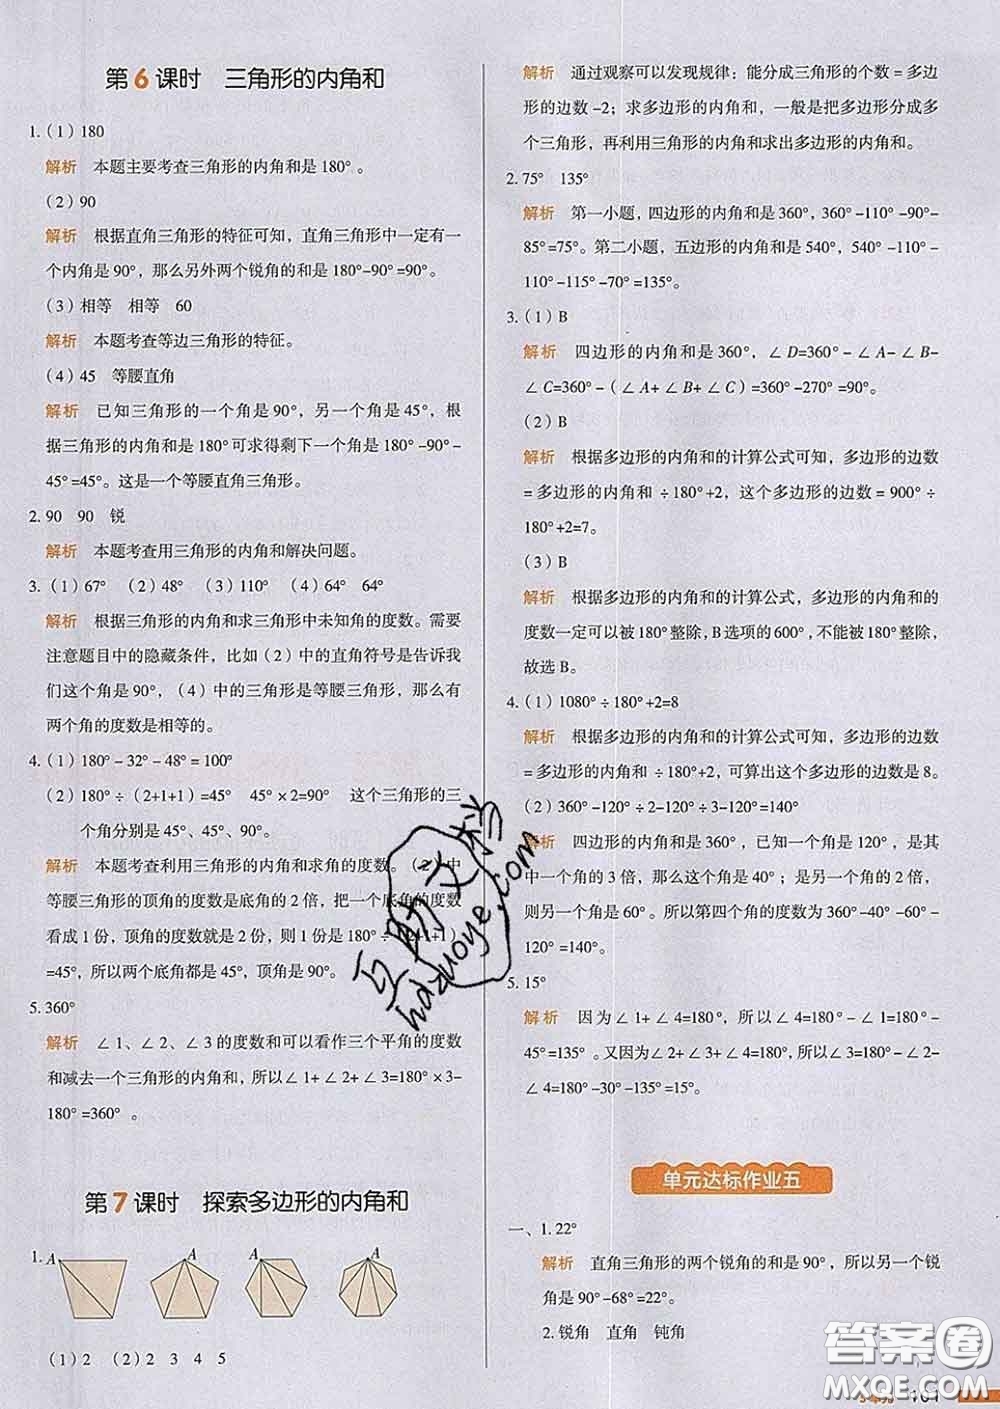 第6课时 三角形的内角和
1.（1）180
解析 本题主要考查三角形的内角和是180°。
（2）90
解析 根据直角三角形的特征可知，直角三角形中一定有一
个内角是90°，那么另外两个锐角的和是180°-90°=90°。
（3）相等 相等 60
解析 本题考查等边三角形的特征。
（4）45 等腰直角
解析 已知三角形的一个角是90°，另一个角是45°，根
据三角形的内角和是180°可求得剩下一个角是180°-90°-
45°=45°。这是一个等腰直角三角形。
2. 90 90 锐
解析 本题考查用三角形的内角和解决问题。
3.（1）67° （2）48° （3）110° （4）64° 64°
解析 根据三角形的内角和求三角形中未知角的度数。需要
注意题目中的隐藏条件，比如（2）中的直角符号是告诉我
们这个角是90°，（4）中的三角形是等腰三角形，那么有
两个角的度数是相等的。
4.（1）180°-32°-48°=100°
（2）180°÷（2+1+1）=45° 45°×2=90° 这个三角形的三
个角分别是45°、45°、90°。
解析 本题考查利用三角形的内角和求角的度数。（2）中
等腰三角形的顶角的度数是底角的2倍，把一个底角的度数
看成1份，顶角的度数就是2份，则1份是180°÷（2+1+1）
=45°，所以两个底角都是45°，顶角是90°。
5. 360°
解析 ∠1、∠2、∠3的度数和可以看作三个平角的度数
和减去一个三角形的内角和，所以∠1+∠2+∠3=180°×3-
180°=360°。
第7课时 探索多边形的内角和
1. A A A A
（1）2 （2）2 3 4 5
解析 通过观察可以发现规律：能分成三角形的个数=多边
形的边数-2；求多边形的内角和，一般是把多边形分成多
个三角形，再利用三角形的内角和求出多边形的内角和。
2. 75° 135°
解析 第一小题，四边形的内角和是360°，360°-110°-90°-
85°=75°。第二小题，五边形的内角和是540°，540°-110°-
110°-115°-70°=135°。
3.（1）B
解析 四边形的内角和是360°，∠D=360°-∠A-∠B-
∠C=360°-（∠A+∠B+∠C）=360°-270°=90°。
（2）B
解析 根据多边形的内角和的计算公式可知，多边形的边数
=多边形的内角和÷180°+2，这个多边形的边数=900°÷
180°+2=7。
（3）B
解析 根据多边形的内角和的计算公式，多边形的内角和的
度数一定可以被180°整除，B选项的600°，不能被180°整除，
故选B。
4.（1）1080°÷180°+2=8
解析 根据多边形的内角和的计算公式可知，多边形的边数
=多边形的内角和÷180°+2，可算出这个多边形的边是8。
（2）360°-120°÷2-120°÷3-120°=140°
解析 四边形的内角和是360°，已知一个角是120°，是其
中一个角的3倍，那么这个角是40°；是另一个角的2倍，
则另一个角是60°。所以第四个角的度数为360°-40°-60°-
120°=140°。
5. 15°
解析 因为∠1+∠4=180°，所以∠4=180°-∠1=180°-
45°=135°。又因为∠2+∠3+∠4=180°，所以∠3=180°-∠2-
∠4=180°-30°-135°=15°。
单元达标作业五
一、1. 22°
解析 直角三角形的两个锐角的和是90°，所以另一个锐
角是90°-68°=22°。
2. 锐角 直角 钝角
互助文档
hdzuoye.com
答案圈
MXQE.COM